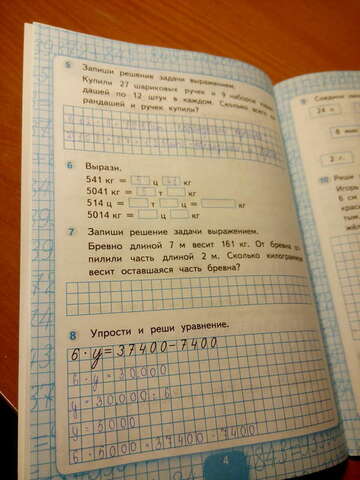 5 Запиши решение задачи выражением.
Купили 27 шариковых ручек и 9 наборов
дашей по 12 штук в каждом. Сколько всего
рандашей и ручек купили?
6 Вырази.
541 кг = 5 ц 41 кг
5041 кг = 5 т кг
514 ц = т ц = кг
5014 кг = т кг
7 Запиши решение задачи выражением.
Бревно длиной 7 м весит 161 кг. От бревна
пилили часть длиной 2 м. Сколько килограммов
весит оставшаяся часть бревна?
8 Упрости и реши уравнение.
6 · y = 37400 - 7400
6 · y = 30000
y = 30000 : 6
y = 5000
6 · 5000 = 37400 - 7400
4
9 Соедини
24 ч
8 мин
2 г.
10 Реши
Игорь
6 см
крас
тыг
жёл